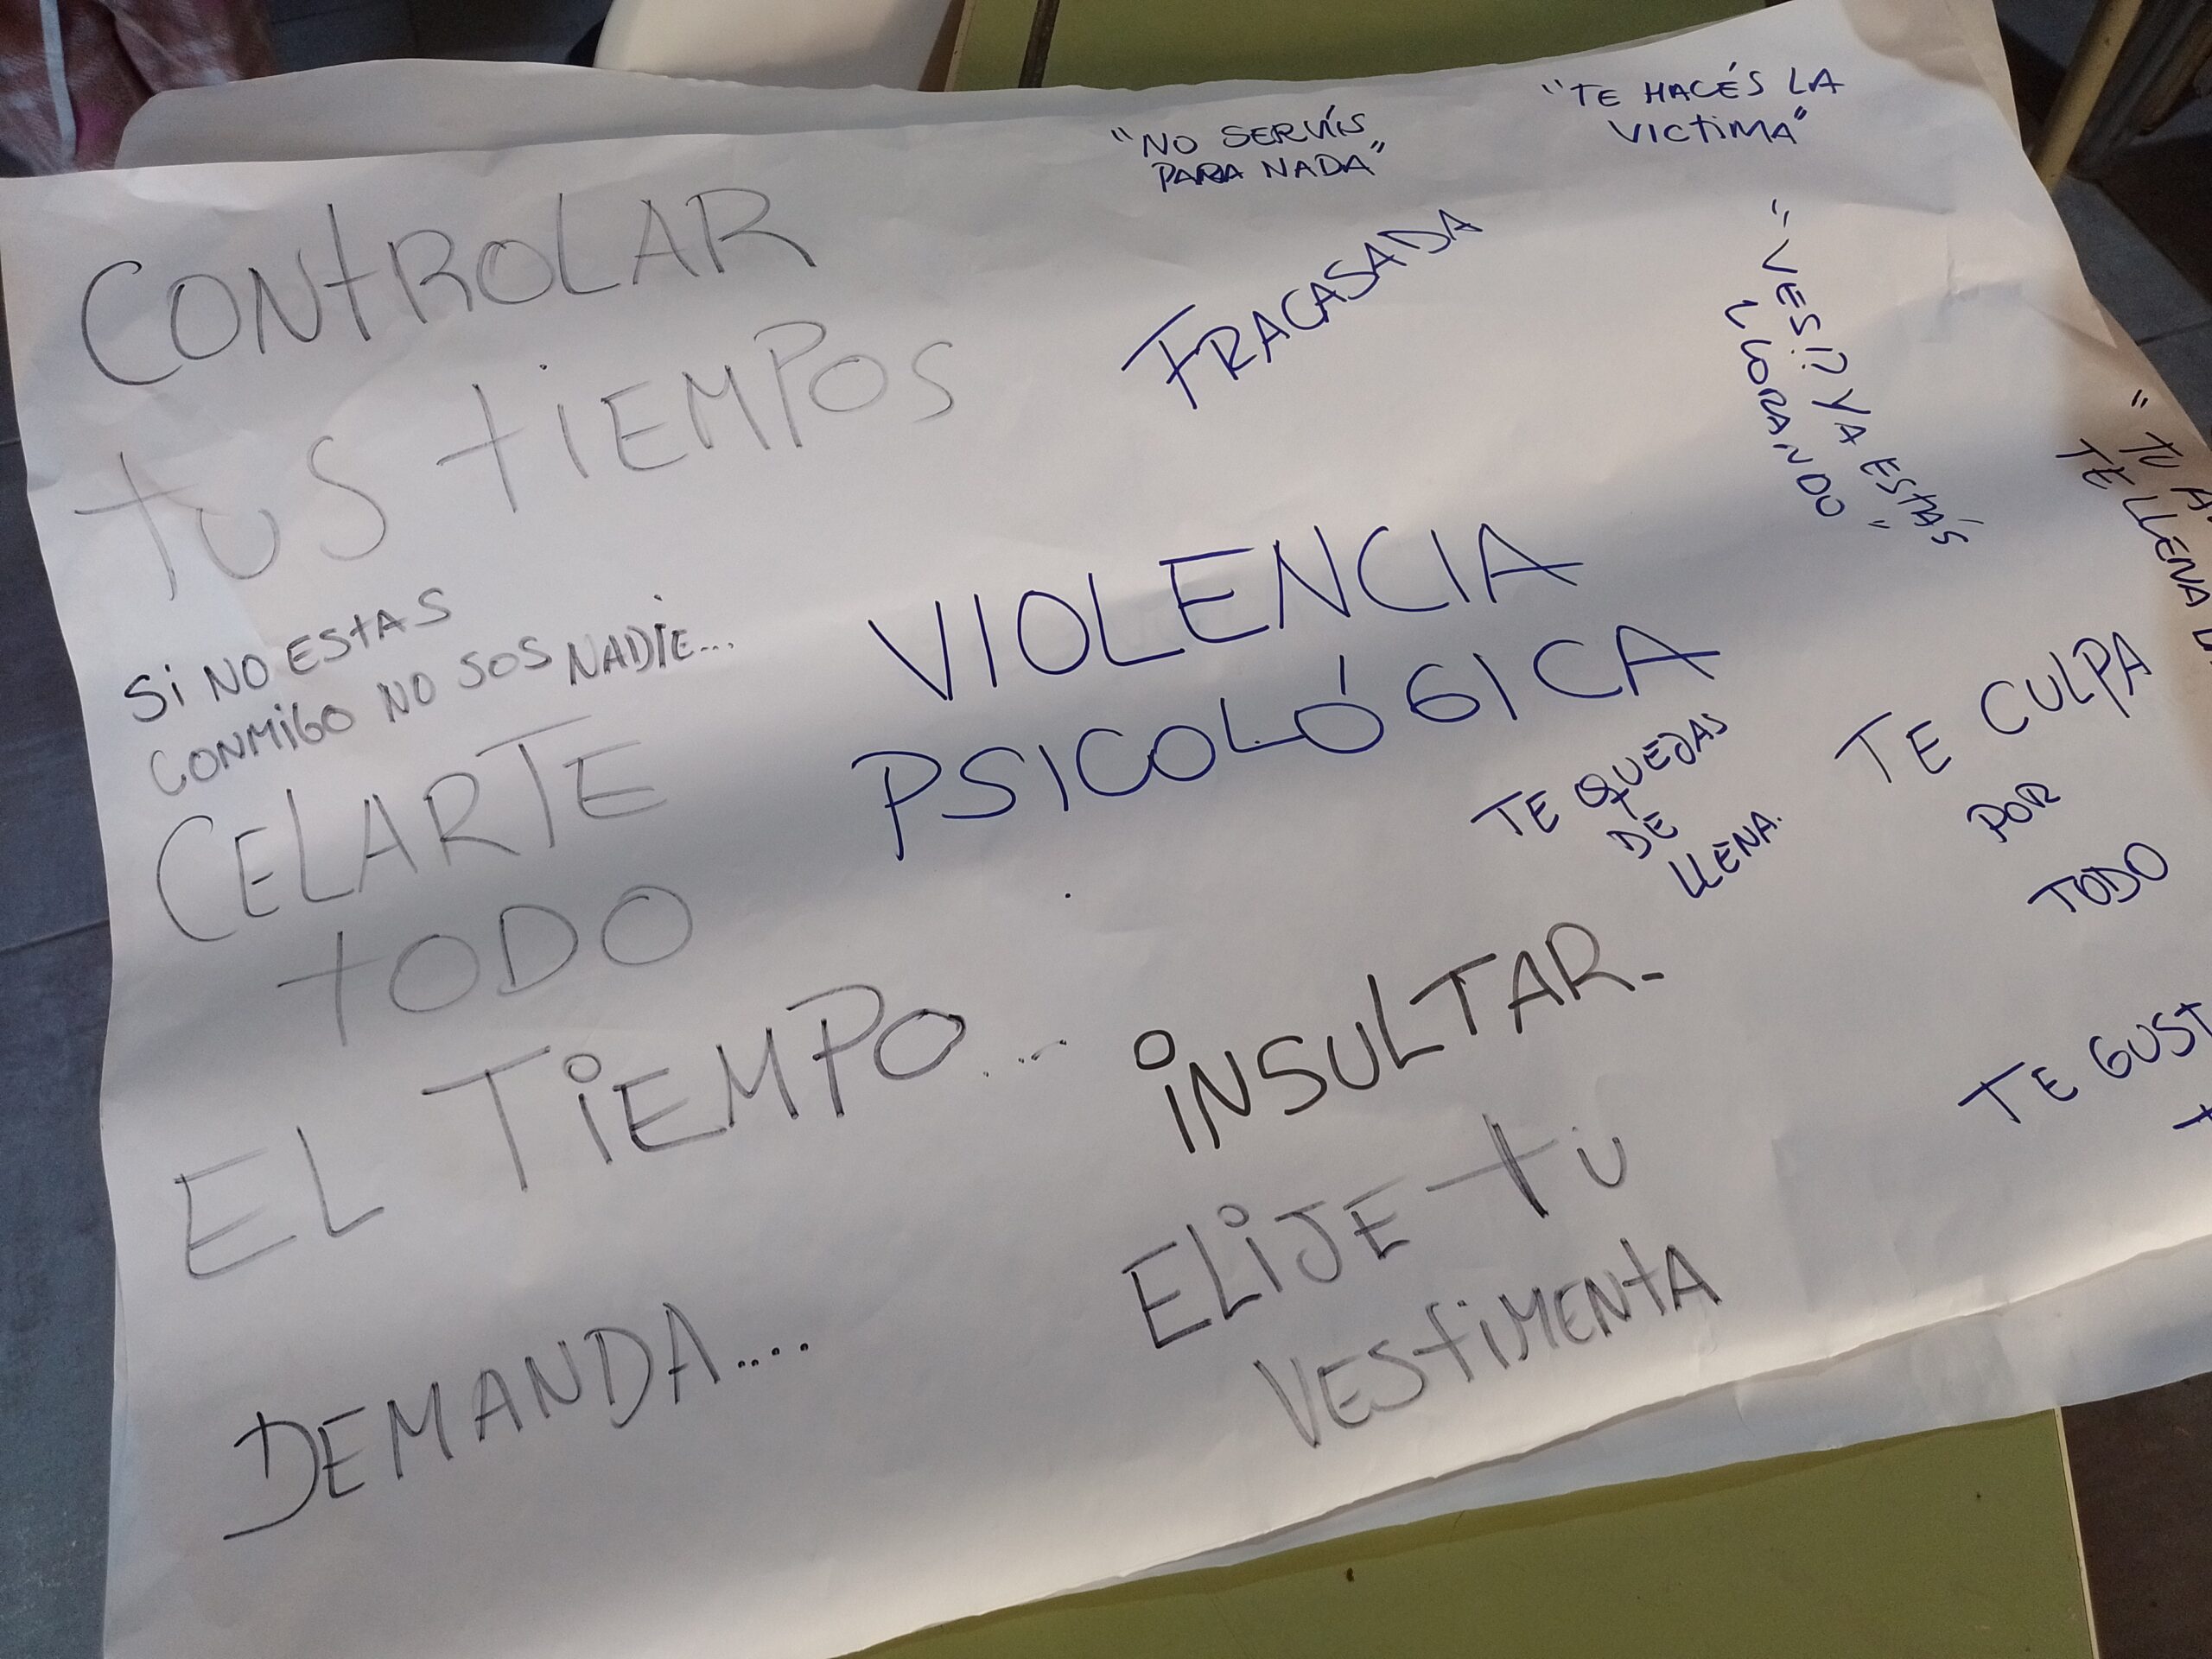 "NO SERVÍS
PARA NADA"
"TE HACÉS LA
VICTIMA"
CONTROLAR
TUS TIEMPOS
FRACASADA
"VES!? YA ESTÁS
LLORANDO"
"TU
TE LLENA
SI NO ESTAS
CONMIGO NO SOS NADIE...
VIOLENCIA
PSICOLÓGICA
CELARTE
TODO
EL TIEMPO...
TE QUEJAS
DE
LLENA.
TE CULPA
POR
TODO
INSULTAR.
ELIJE TU
VESTIMENTA
TE GUST
DEMANDA....